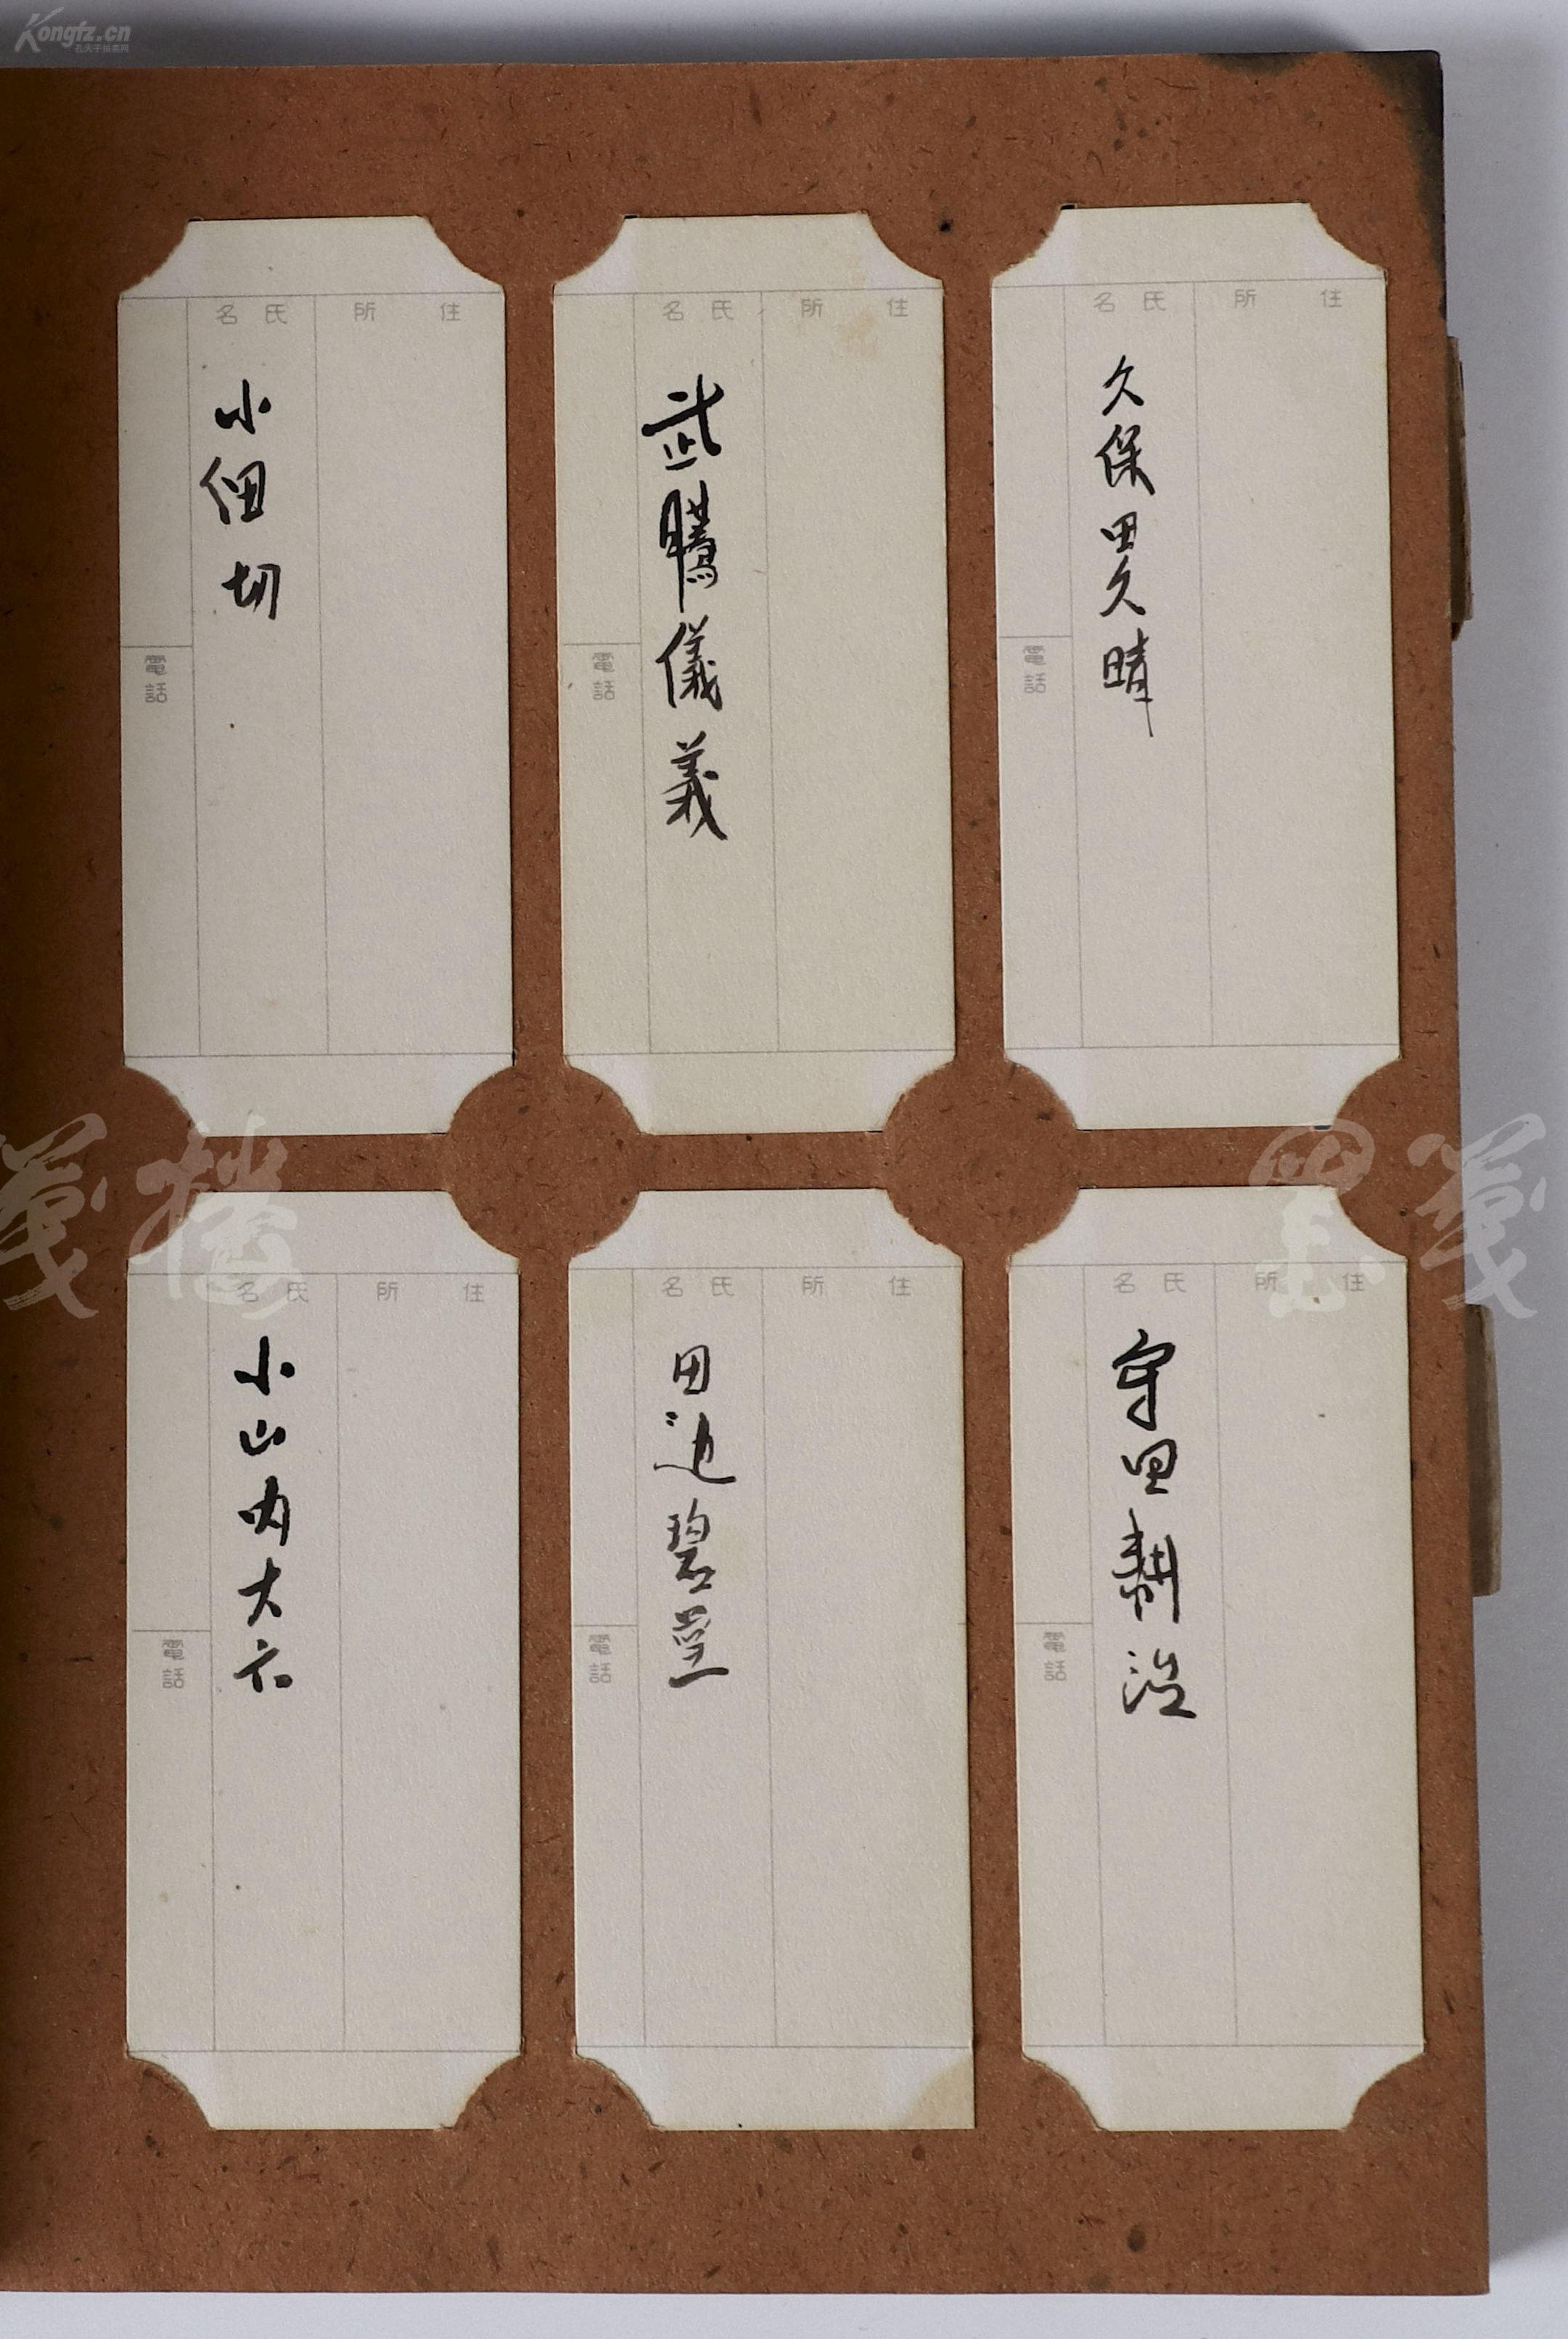 Kongfz.cn
孔夫子拍卖网
住所
氏名
久保田久晴
電話
住所
氏名
武騰儀義
電話
住所
氏名
小佃切
電話
住所
氏名
守田耕治
電話
住所
氏名
田边碧堂
電話
住所
氏名
小山内大六
電話
墨箋
箋樓